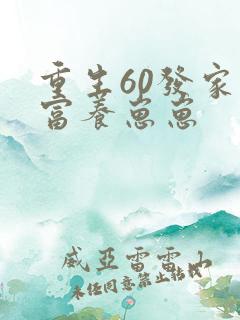 重生60發家
富养崽崽
威亞雷雷山
未任同意禁止转载